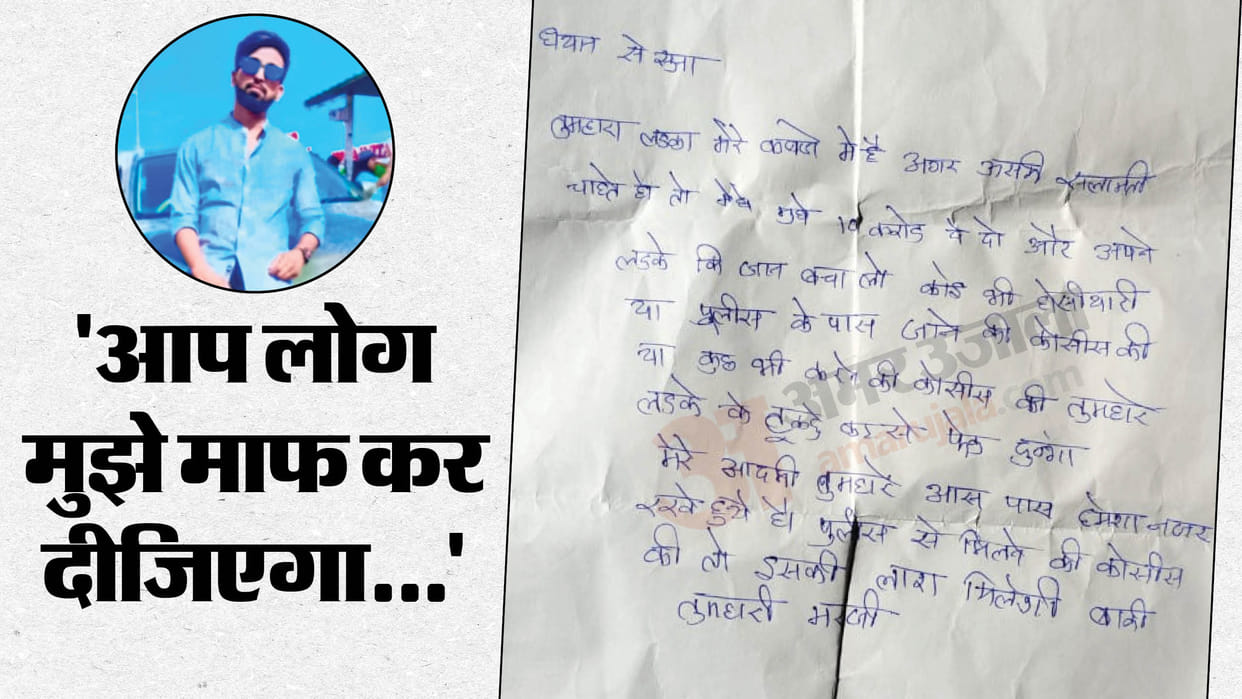 'आप लोग
मुझे माफ कर
दीजिएगा...'
धेयान से सुना
तुमहारा लडका मेरे कबजे मे है अगर उसकी सलामती
चाहते हो तो मुझे 10 करोड दे दो और अपने
लडके कि जान बचा लो कोई भी होसीयारी
या पूलीस के पास जाने की कोसीस की
या कुछ भी करने की कोसीस की तुमहारे
लडके के टूकडे करके फेक दुन्गा
मेरे आदमी तुमहारे आस पास हमेशा नजर
रखे हुये है। पुलिस से मिलने की कोसीस
की तो इसकी लाश मिलेगी बाकी
तुमहारी मरजी
अमर उजाला
amarujala.com